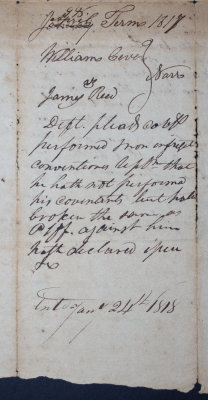 Term 1817
Williams Cover
vs Narr
James Reed
Deft. pleads
performed & non infregit
conventiones Repl.n that
he hath not performed
his covenants but hath
broken the same as
Plff. against him
hath declared issue
&c
Ent.d Jan.y 24th 1818